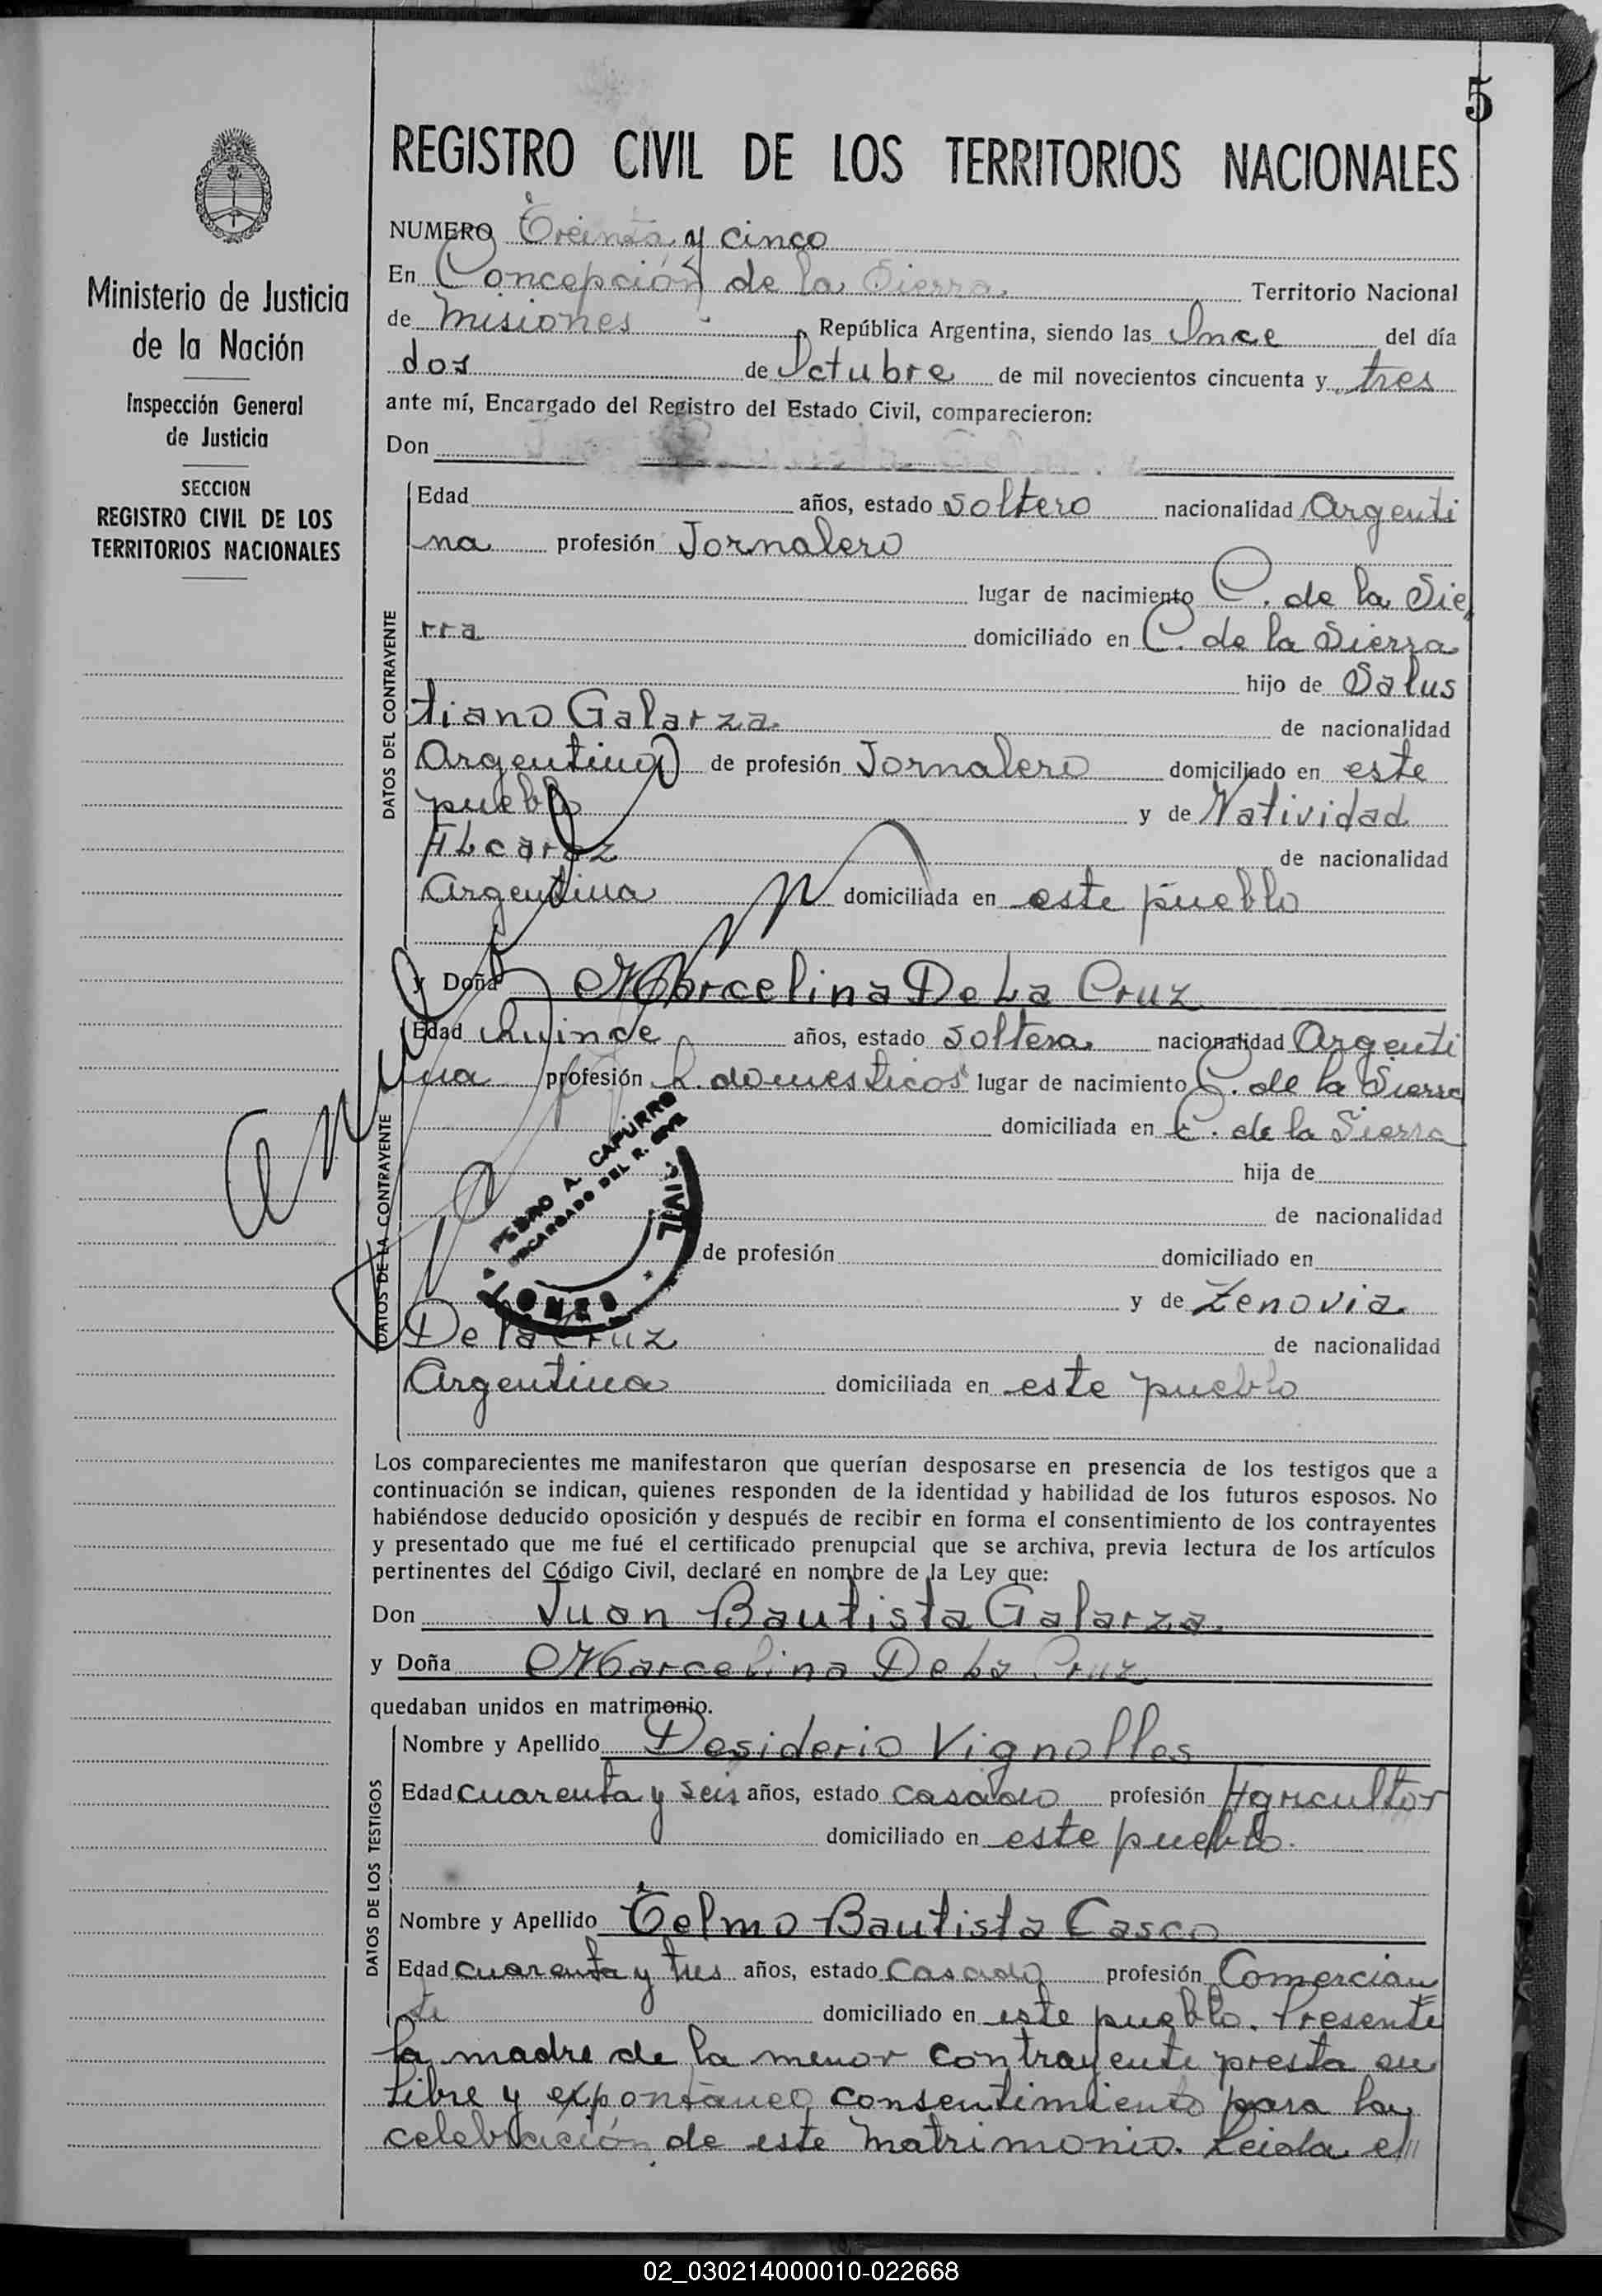 5
REGISTRO CIVIL DE LOS TERRITORIOS NACIONALES
Ministerio de Justicia
de la Nación
Inspección General
de Justicia
SECCION
REGISTRO CIVIL DE LOS
TERRITORIOS NACIONALES
NUMERO Treinta y cinco
En Concepción de la Sierra Territorio Nacional
de Misiones, República Argentina, siendo las Once del día
dos de Octubre de mil novecientos cincuenta y tres
ante mí, Encargado del Registro del Estado Civil, comparecieron:
Don
DATOS DEL CONTRAYENTE
Edad años, estado soltero nacionalidad Argenti
na profesión Jornalero
lugar de nacimiento C. de la Sie
rra domiciliado en C. de la Sierra
hijo de Salus
tiano Galarza de nacionalidad
Argentina de profesión Jornalero domiciliado en este
pueblo y de Natividad
Alcaraz de nacionalidad
Argentina domiciliada en este pueblo
y Doña Marcelina De La Cruz
DATOS DE LA CONTRAYENTE
Edad Quince años, estado soltera nacionalidad Argenti
na profesión Q. domesticos lugar de nacimiento C. de la Sierra
domiciliada en C. de la Sierra
hija de
de nacionalidad
de profesión domiciliado en
y de Zenovia
De la Cruz de nacionalidad
Argentina domiciliada en este pueblo
PEDRO A. CAPURRO
ENCARGADO DEL R. CIVIL
CIVIL
Los comparecientes me manifestaron que querían desposarse en presencia de los testigos que a
continuación se indican, quienes responden de la identidad y habilidad de los futuros esposos. No
habiéndose deducido oposición y después de recibir en forma el consentimiento de los contrayentes
y presentado que me fué el certificado prenupcial que se archiva, previa lectura de los artículos
pertinentes del Código Civil, declaré en nombre de la Ley que:
Don Juan Bautista Galarza
y Doña Marcelina De La Cruz
quedaban unidos en matrimonio.
DATOS DE LOS TESTIGOS
Nombre y Apellido Desiderio Vignolles
Edad cuarenta y seis años, estado casado profesión Agricultor
domiciliado en este pueblo.
Nombre y Apellido Telmo Bautista Casco
Edad cuarenta y tres años, estado Casado profesión Comercian
te domiciliado en este pueblo. Presente
la madre de la menor contrayente presta su
libre y expontaneo consentimiento para la
celebración de este matrimonio. Leida el
02_030214000010-022668